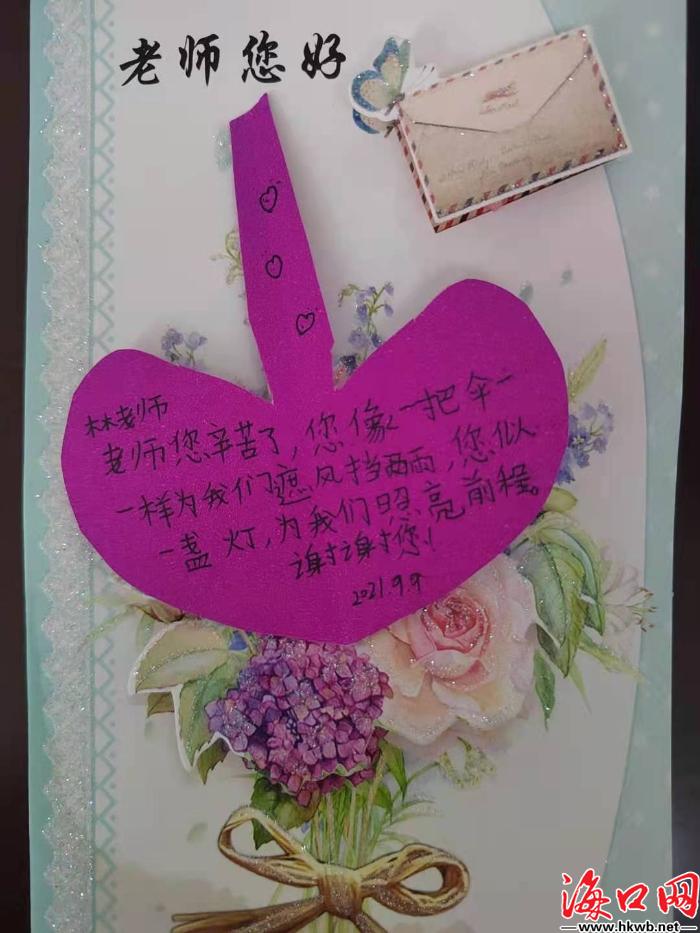 老师您好
林老师
老师您辛苦了,您像一把伞一
一样为我们遮风挡雨,您似
一盏灯,为我们照亮前程。
谢谢您!
2021.9.9
海口网
www.hkwb.net